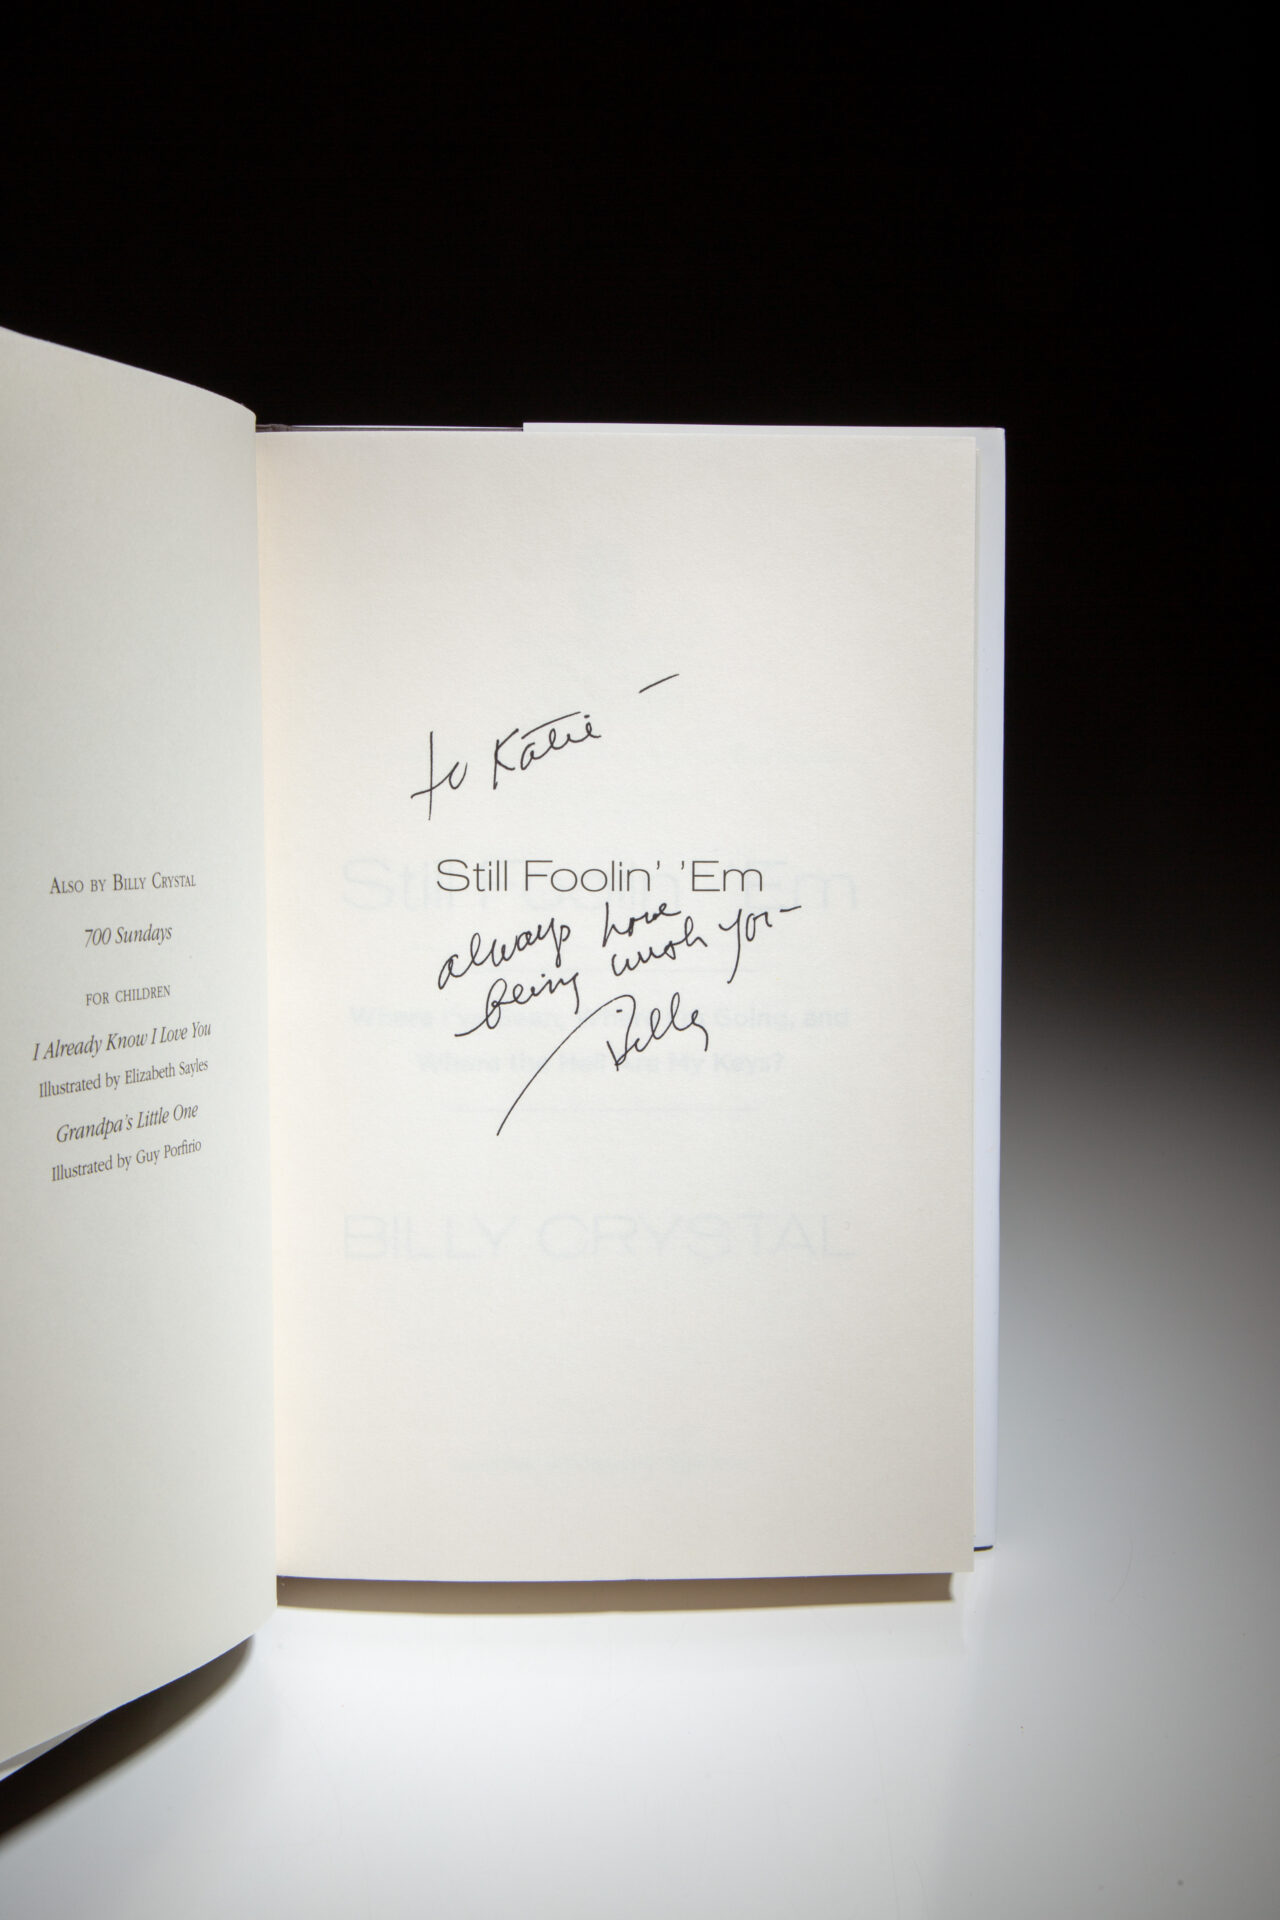 ALSO BY BILLY CRYSTAL
700 Sundays
FOR CHILDREN
I Already Know I Love You
Illustrated by Elizabeth Sayles
Grandpa's Little One
Illustrated by Guy Porfirio
to Katie —
Still Foolin' 'Em
always love
being with you—
Billy
Still Foolin' 'Em
Where I've Been, Where I'm Going, and
Where the Hell Are My Keys?
BILLY CRYSTAL